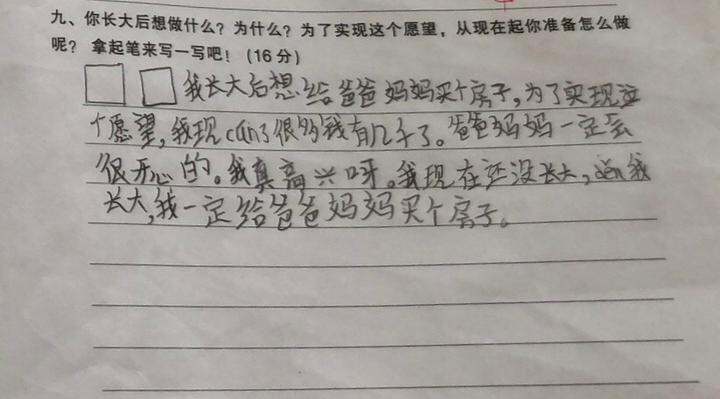 九、你长大后想做什么？为什么？为了实现这个愿望，从现在起你准备怎么做
呢？拿起笔来写一写吧！(16分)
我长大后想给爸爸妈妈买个房子，为了实现这
个愿望，我现cún了很多钱有几千了。爸爸妈妈一定会
很开心的。我真高兴呀。我现在还没长大，děn我
长大，我一定给爸爸妈妈买个房子。